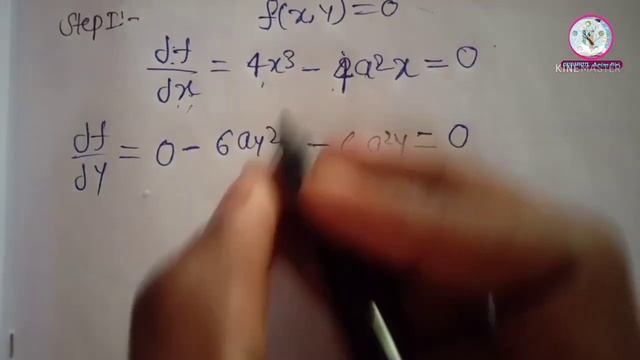 Step I:-
f(x,y)=0
df/dx = 4x³ - 4a²x = 0
df/dy = 0 - 6ay² - 6a²y = 0
KINEMASTER